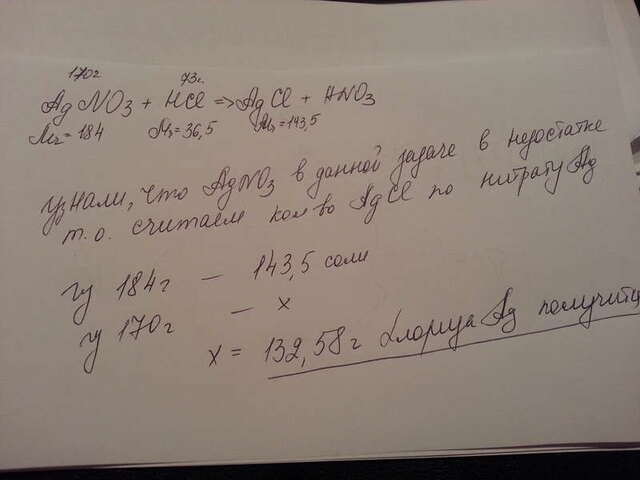 170г 73г.
AgNO3 + HCl => AgCl + HNO3
Mr = 184 Mr = 36,5 Mr = 143,5
узнали, что AgNO3 в данной задаче в недостатке
т.о. считаем кол во AgCl по нитрату Ag
184г — 143,5 соли
170г — x
x = 132,58г хлорида Ag получитс